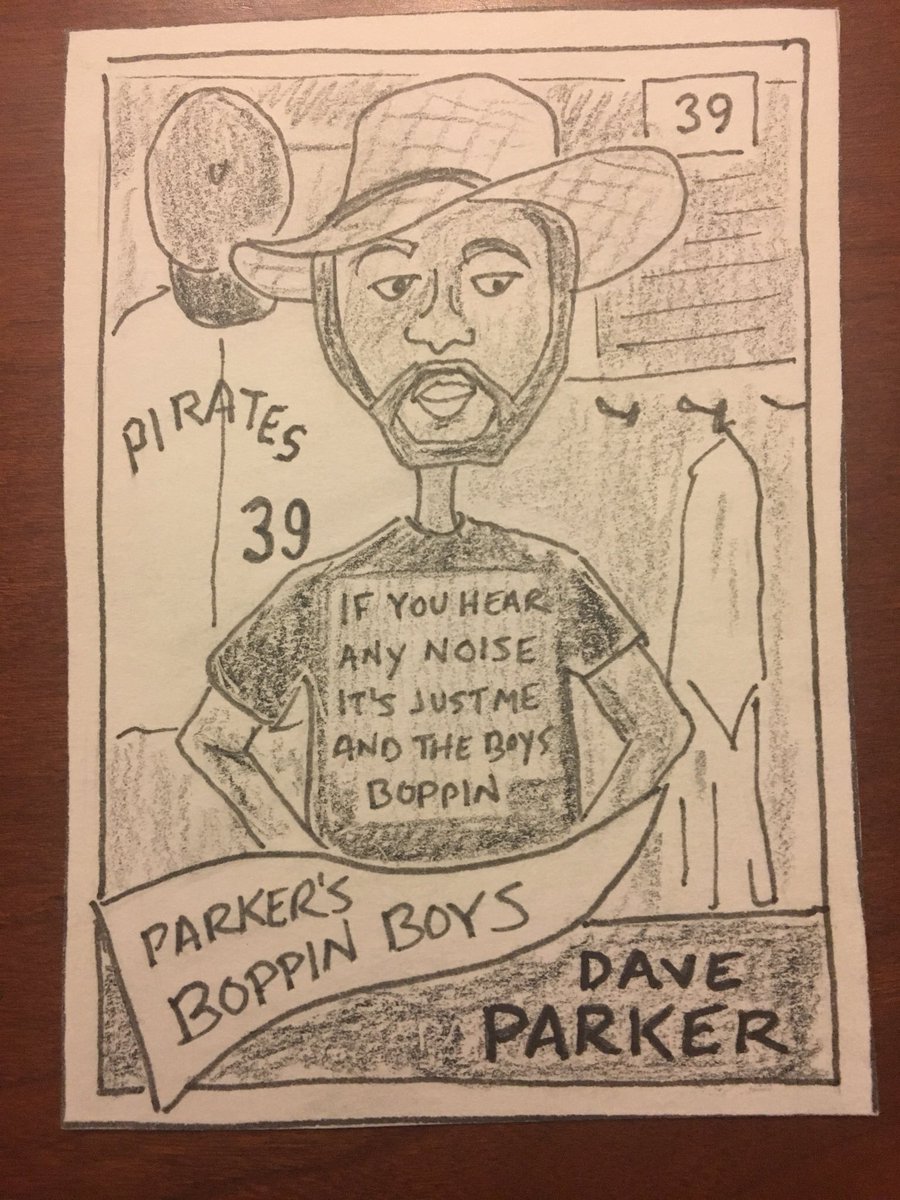 39
PIRATES
39
IF YOU HEAR
ANY NOISE
IT'S JUST ME
AND THE BOYS
BOPPIN
PARKER'S
BOPPIN BOYS
DAVE
PARKER